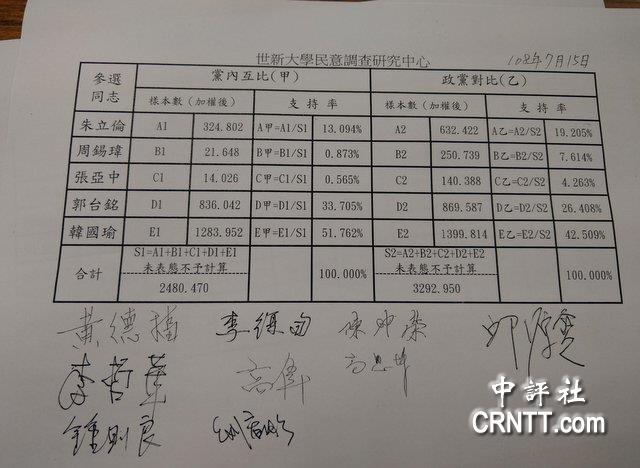 世新大學民意調查研究中心 108年7月15日
參選同志 黨內互比(甲) 政黨對比(乙)
樣本數(加權後) 支持率 樣本數(加權後) 支持率
朱立倫 A1 324.802 A甲=A1/S1 13.094% A2 632.422 A乙=A2/S2 19.205%
周錫瑋 B1 21.648 B甲=B1/S1 0.873% B2 250.739 B乙=B2/S2 7.614%
張亞中 C1 14.026 C甲=C1/S1 0.565% C2 140.388 C乙=C2/S2 4.263%
郭台銘 D1 836.042 D甲=D1/S1 33.705% D2 869.587 D乙=D2/S2 26.408%
韓國瑜 E1 1283.952 E甲=E1/S1 51.762% E2 1399.814 E乙=E2/S2 42.509%
合計 S1=A1+B1+C1+D1+E1 100.000% S2=A2+B2+C2+D2+E2 100.000%
未表態不予計算 未表態不予計算
2480.470 3292.950
黃德福
李哲華 高偉
鍾則良
中評社
CRNTT.com